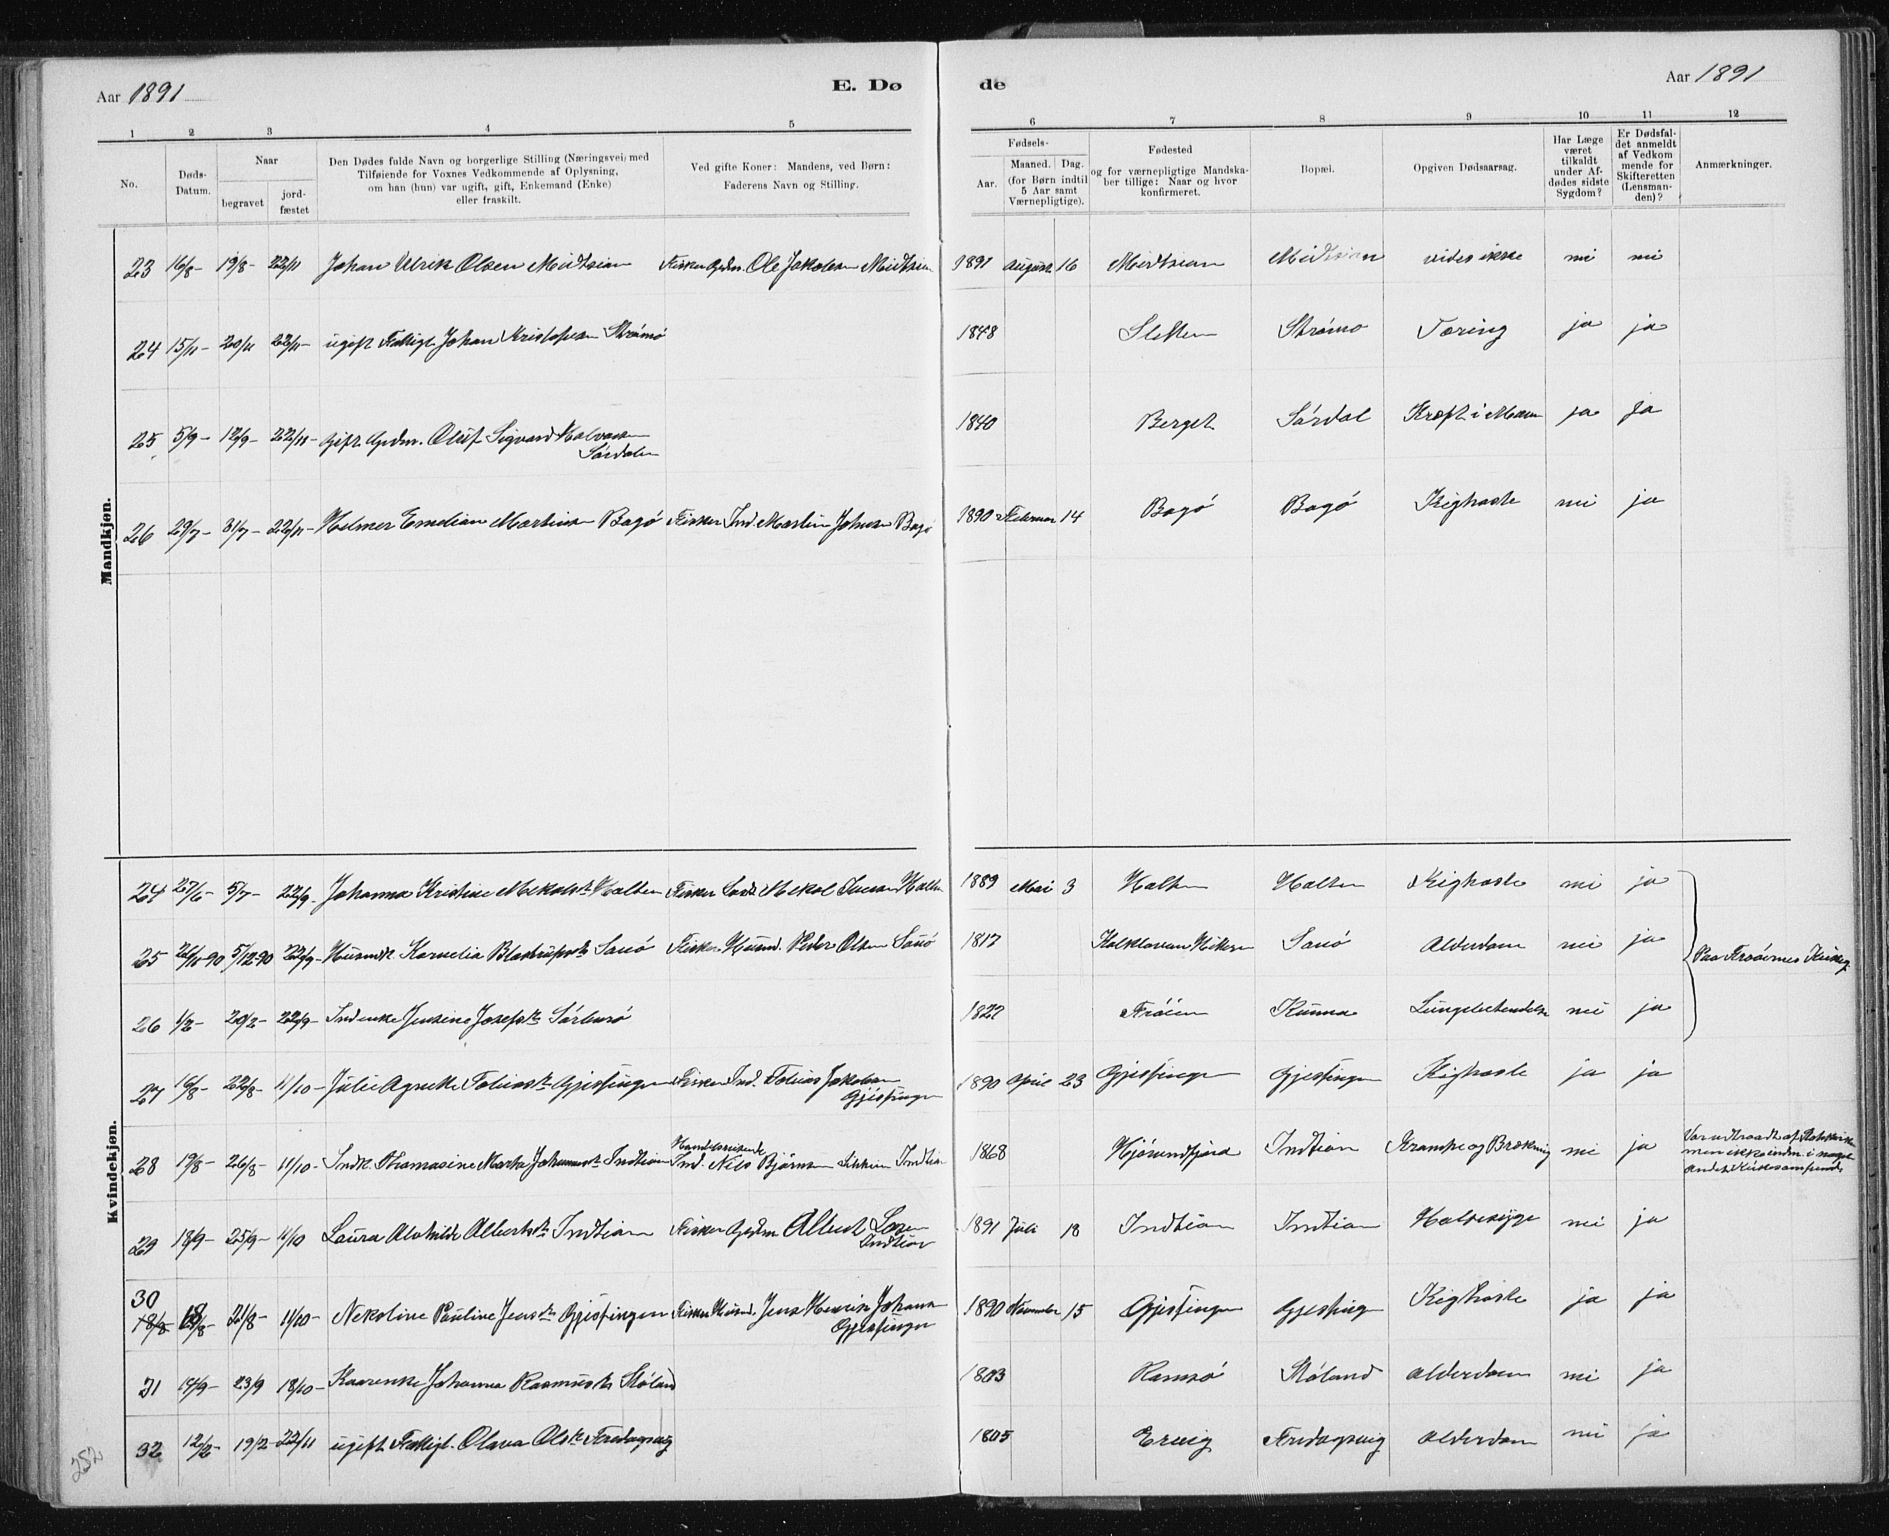 Aar 1891
E. Dø
de
Aar 1891
1 2 3 4 5 6 7 8 9 10 11 12
No.
Døds-
Datum.
Naar
begravet
jord-
fæstet
Den Dødes fulde Navn og borgerlige Stilling (Næringsvei) med
Tilføiende for Voxnes Vedkommende af Oplysning,
om han (hun) var ugift, gift, Enkemand (Enke)
eller fraskilt.
Ved gifte Koner: Mandens, ved Børn:
Faderens Navn og Stilling.
Fødsels-
Aar.
Maaned. Dag.
(for Børn indtil
5 Aar samt
Værnepligtige).
Fødested
og for værnepligtige Mandska-
ber tillige: Naar og hvor
konfirmeret.
Bopæl.
Opgiven Dødsaarsag.
Har Læge
været
tilkaldt
under Af-
dødes sidste
Sygdom?
Er Dødsfal-
det anmeldt
af Vedkom
mende for
Skifteretten
(Lensman-
den)?
Anmærkninger.
Mandkjøn.
23 16/8- 19/8- 22/11 Johan Ulrik Olsen Midtsian Fisker Gdm. Ole Jakobsen Midtsian 1891 August 16 Midtsian Midtsian vides ikke nei nei
24 15/11- 20/11 22/11- ugift Fattigl. Johan Kristofersen Strømø 1848 Sletten Strømø Tæring ja ja
25 5/9- 12/9- 22/11- Gift Gdm. Oluf Sigvard Halvorsen
Sørdalen 1840 Berget Sørdal Kræft i Maven ja ja
26 29/7- 31/7- 22/11- Helmer Emelian Martinsen Bogø Fisker Ind. Martin Johnsen Bogø 1890 Februar 14 Bogø Bogø Kighoste nei ja
Kvindekjøn.
24 27/6- 5/7- 22/9- Johanna Kristine Mekalsdt. Halten Fisker Mekal Halten 1889 Mai 3 Halten Halten Kighoste nei ja
25 26/11-90 5/12 90 22/9- Husmdk. Kornelia Sauø Fisker Husmd. Peder Olsen Sauø 1817 Sauø Alderdom nei ja Paa Froøernes Kirkeg.
26 1/2- 20/2- 22/9- Indenke Jensine Josefsdt. Sørbusø 1822 Frøien Kunna Lungebetendelse nei ja
27 16/8- 22/8- 11/10- Julie Agnete Tobiasdt. Gjessingen Fisker Ind. Tobias Jakobsen
Gjessingen 1890 April 23 Gjessingen Gjessingen Kighoste ja ja
28 19/8- 26/8- 11/10- Indk. Thomasine Marta Indtian Handelsreisende
Ind. Nils Bjørnsen Indtian 1868 Hjørundfjord Indtian Krampe og Brækning nei ja Var udtraadt af Statskirken
men ikke indm. i noget
andet Kirkesamfund
29 18/9- 25/9- 11/10 Laura Alvhilde Albertsdt. Indtian Fisker Gdm Albert
Indtian 1891 Juli 18 Indtian Indtian Halsesyge nei ja
30
18/8 18/8- 21/8- 11/10- Nekoline Pauline Jensdt. Gjessingen Fisker Husmd. Jens Henrik Johansen
Gjessingen 1890 November 15 Gjessingen Gjessing Kighoste ja ja
31 14/9- 23/9 18/10- Kaarenke Johanna Rasmusdt. Støland 1803 Ramsø Støland Alderdom nei ja
32 12/2- 19/2- 22/11 ugift Fattigl. Olava Olsdt. Fredagsvig 1805 Ervig Fredagsvig Alderdom nei ja
252